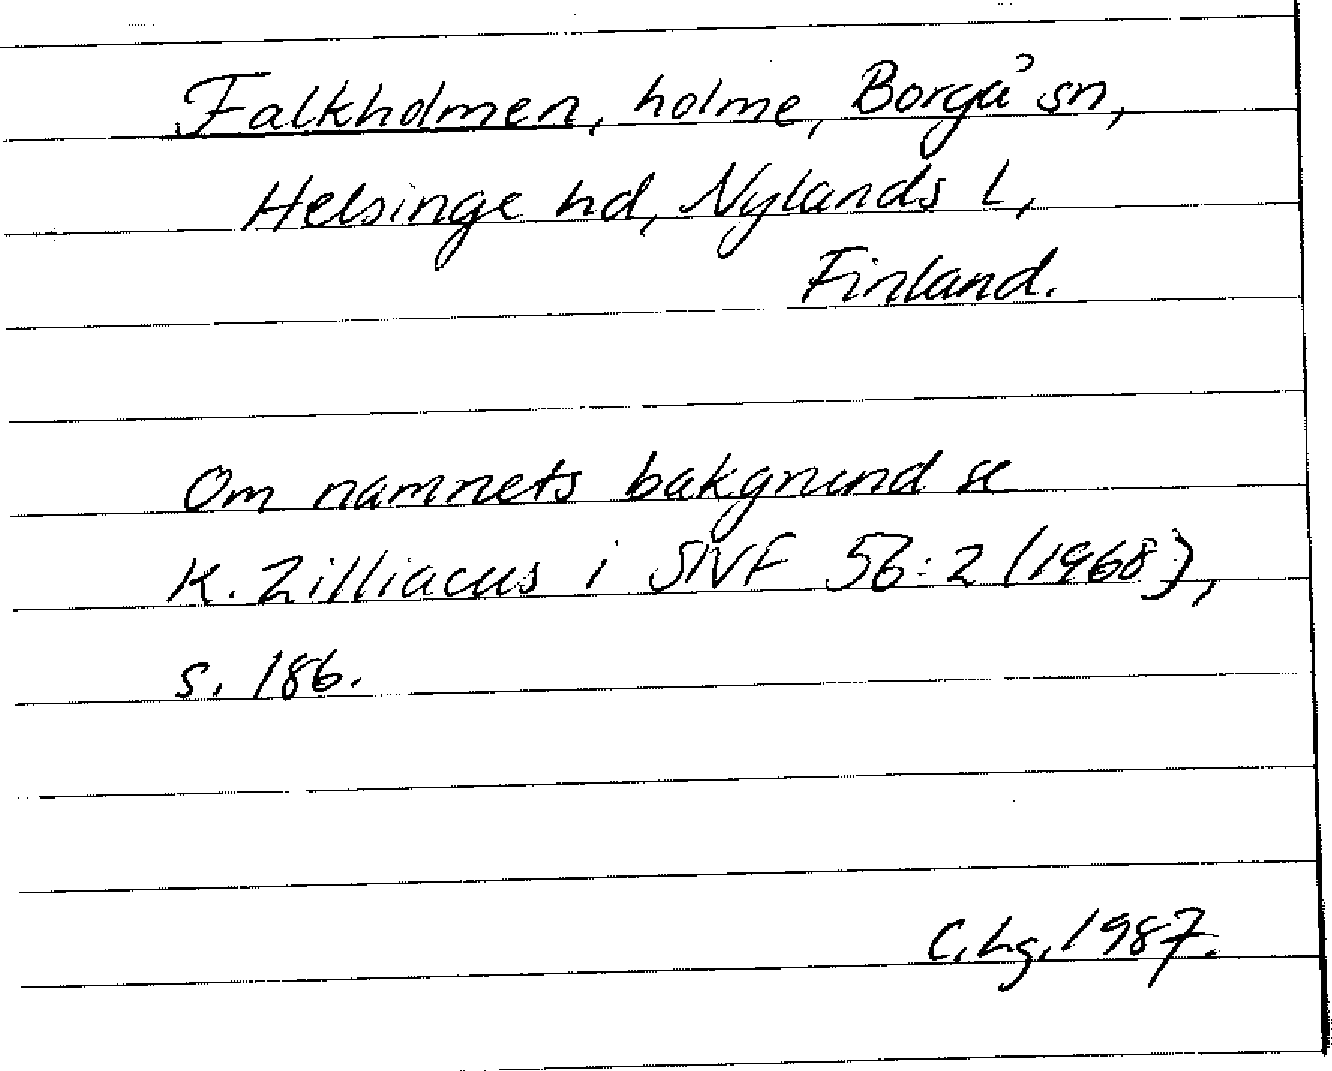 Falkholmen, holme, Borgå sn,
Helsinge hd, Nylands l,
Finland.
Om namnets bakgrund se
K. Zilliacus i SNF 56:2 (1968),
s. 186.
C. Lg. 1987.